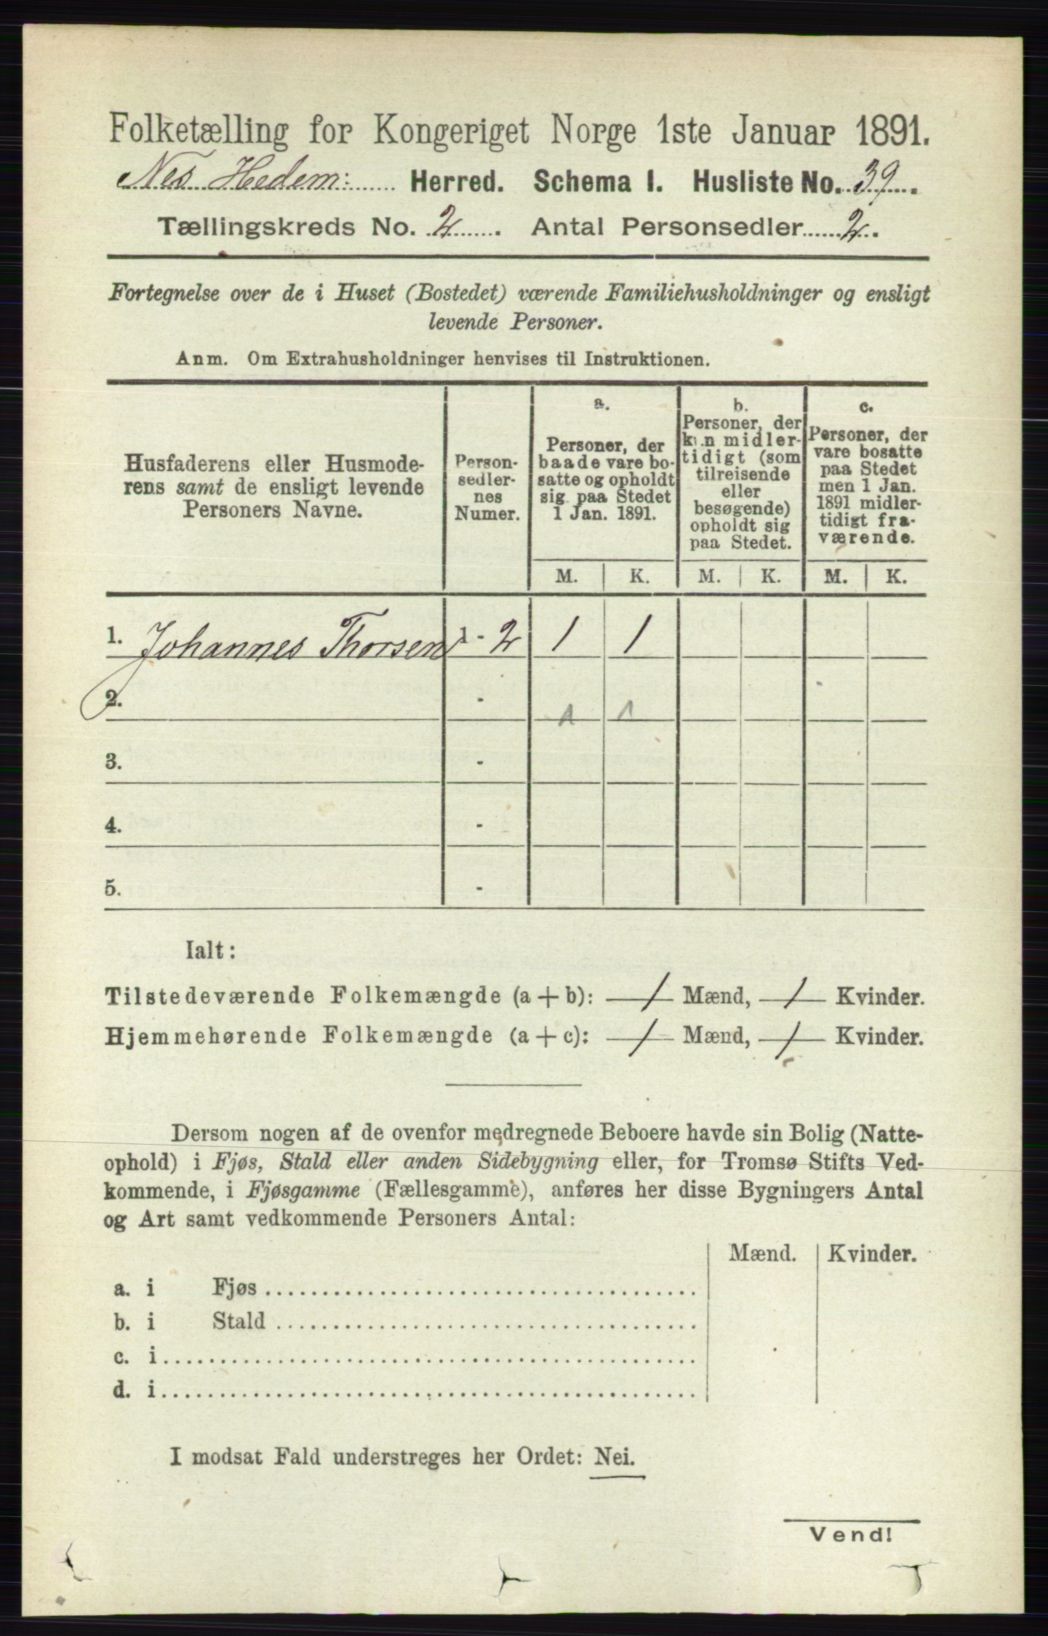 Folketælling for Kongeriget Norge 1ste Januar 1891.
Nes Hedem: Herred. Schema I. Husliste No. 39.
Tællingskreds No. 2. Antal Personsedler 2.
Fortegnelse over de i Huset (Bostedet) værende Familiehusholdninger og ensligt
levende Personer.
Anm. Om Extrahusholdninger henvises til Instruktionen.
Husfaderens eller Husmode-
rens samt de ensligt levende
Personers Navne.
Person-
sedler-
nes
Numer.
a.
Personer, der
baade vare bo-
satte og opholdt
sig paa Stedet
1 Jan. 1891.
b.
Personer, der
kun midler-
tidigt (som
tilreisende
eller
besøgende)
opholdt sig
paa Stedet.
c.
Personer, der
vare bosatte
paa Stedet
men 1 Jan.
1891 midler-
tidigt fra-
værende.
M. K. M. K. M. K.
1. Johannes Thorsen 1 - 2 1 1
2. - 1 1
3. -
4. -
5. -
Ialt:
Tilstedeværende Folkemængde (a + b): 1 Mænd, 1 Kvinder.
Hjemmehørende Folkemængde (a + c): 1 Mænd, 1 Kvinder.
Dersom nogen af de ovenfor medregnede Beboere havde sin Bolig (Natte-
ophold) i Fjøs, Stald eller anden Sidebygning eller, for Tromsø Stifts Ved-
kommende, i Fjøsgamme (Fællesgamme), anføres her disse Bygningers Antal
og Art samt vedkommende Personers Antal:
Mænd. Kvinder.
a. i Fjøs
b. i Stald
c. i
d. i
I modsat Fald understreges her Ordet: Nei.
Vend!